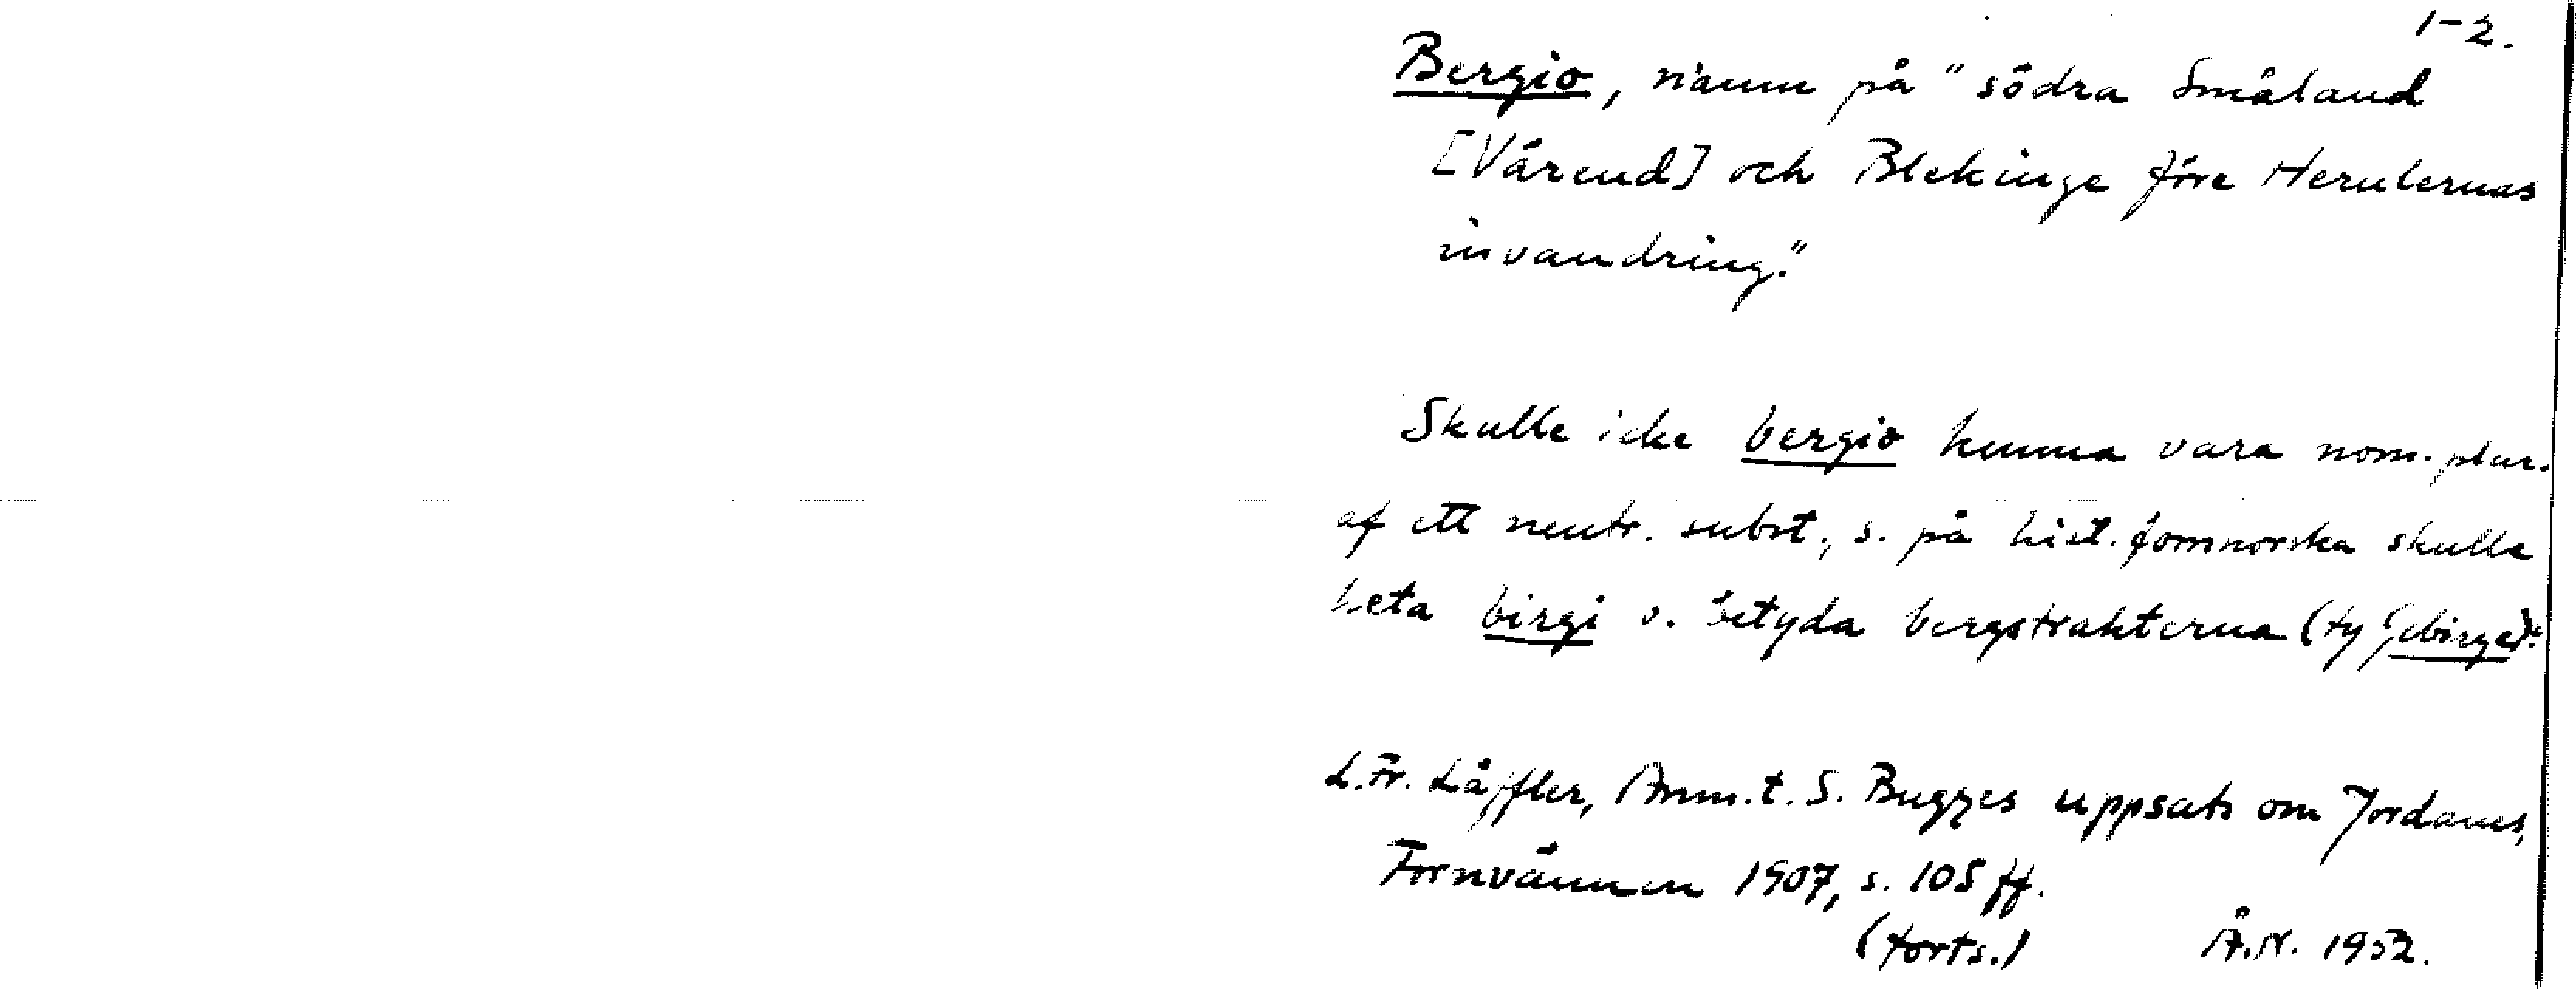 1-2.
Bergio, namn på "södra Småland
[Värend] och Blekinge före Herulernas
invandring."
Skulle icke bergio kunna vara nom. plur.
af ett neutr. subst., s. på hist. fornnorska skulle
heta birgi o. betyda bergstrakterna (ty Gebirge)."
L. Fr. Läffler, Anm. t. S. Bugges uppsats om Jordanes,
Fornvännen 1907, s. 105 ff.
(forts.) Å.N. 1952.